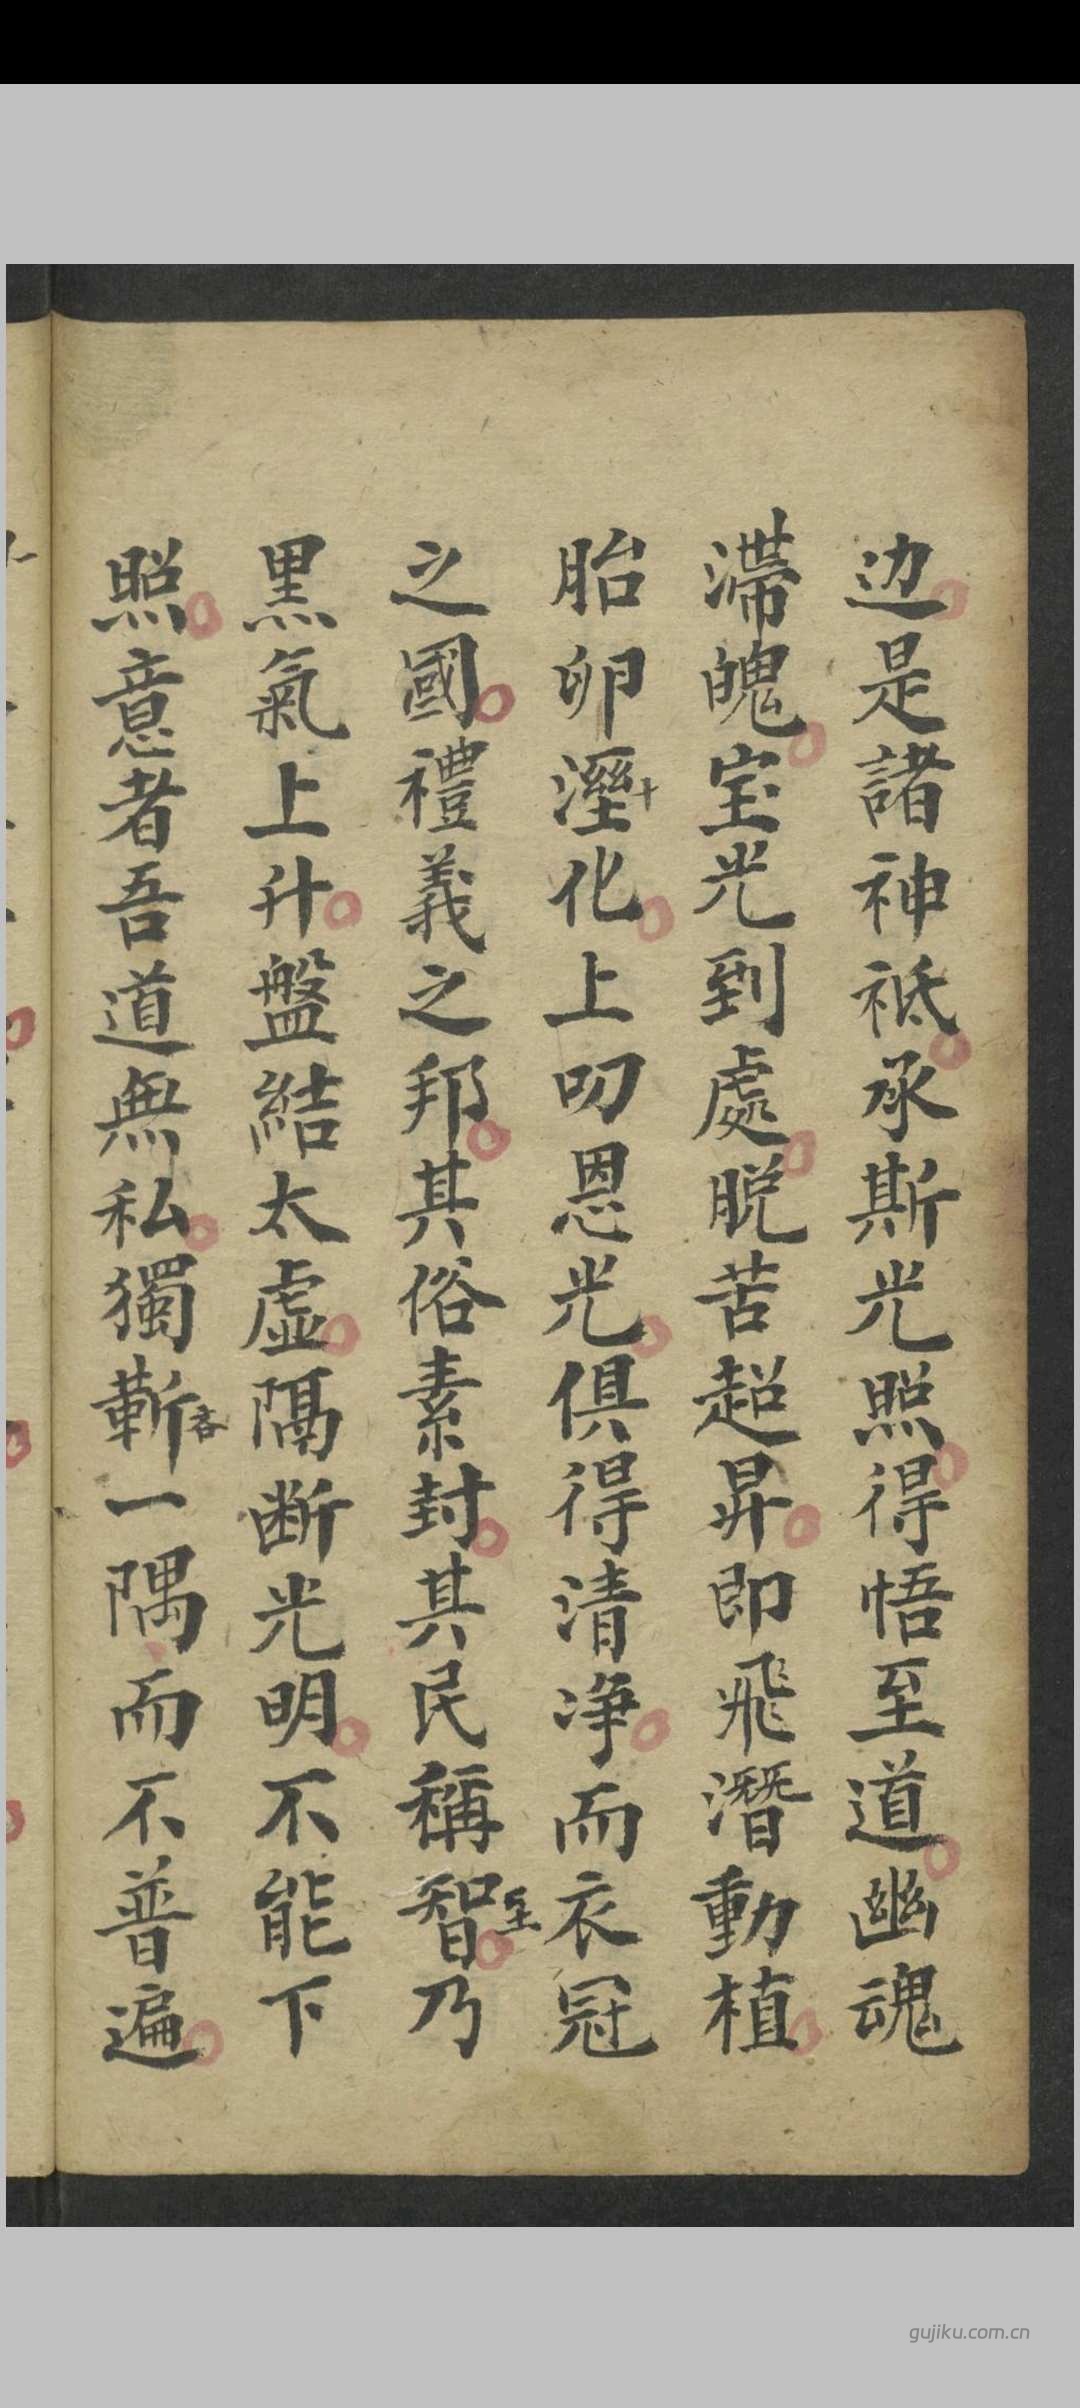 边是諸神祇承斯光照得悟至道幽魂
滞魄宝光到處脱苦超昇即飛潛動植
胎卵溼十化上叨恩光俱得清净而衣冠
之國禮義之邦其俗素封其民稱智至乃
黑氣上升盤結太虛隔断光明不能下
照意者吾道無私獨蘄吝一隅而不普遍
gujiku.com.cn